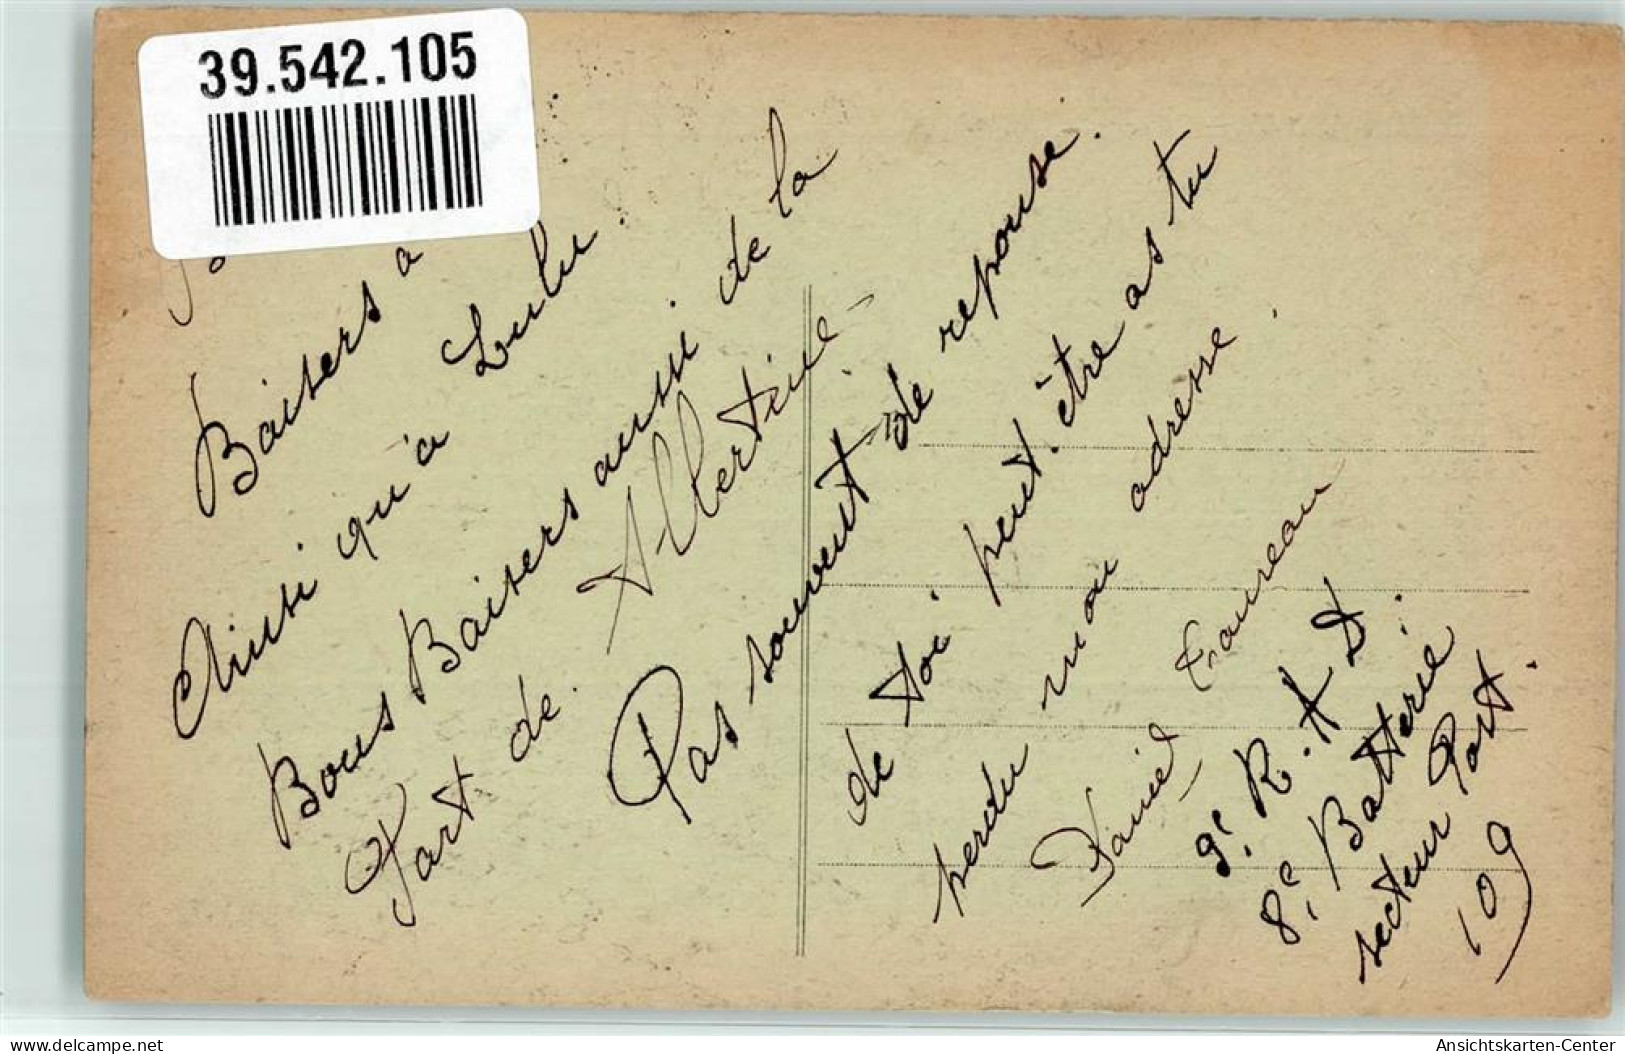 39.542.105
Baisers a
Ainsi qu'a Lulu.
Bons Baisers aussi de la
Part de. Albertine
Pas souvent de repouse.
de toi. peut. être as tu
perdu mon adresse.
Daniel
9e. R. A D.
8e. Batterie
secteur Post.
109
www.delcampe.net
Ansichtskarten-Center